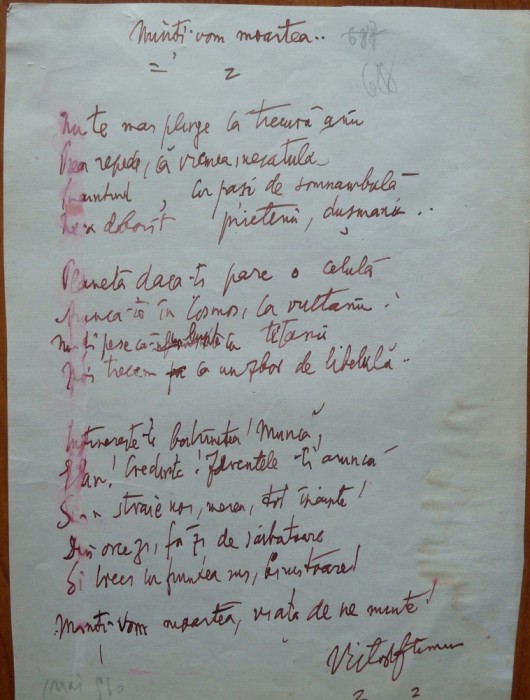 Minți-vom moartea..
687
68
Nu te mai plînge că trecură anii
Prea repede, că vremea, necătula
cu pași de somnambulă
doborît prietenii, dușmanii..
Planeta dacă-ți pare o celulă
Aruncă-te în Cosmos, ca vultanii!
Nu-ți pese că ca titanii
Noi trecem ca un zbor de libelulă..
Întinerește-ți bătrînețea! Muncă,
Elan! Credință! Zdrențele ți-aruncă
Și-n straie noi, mereu, tot înainte!
Din orice zi, fă zi de sărbătoare
Și treci cu fruntea sus, biruitoare!
Minți-vom moartea, viața de ne minte!
Victor Eftimiu
mai 970